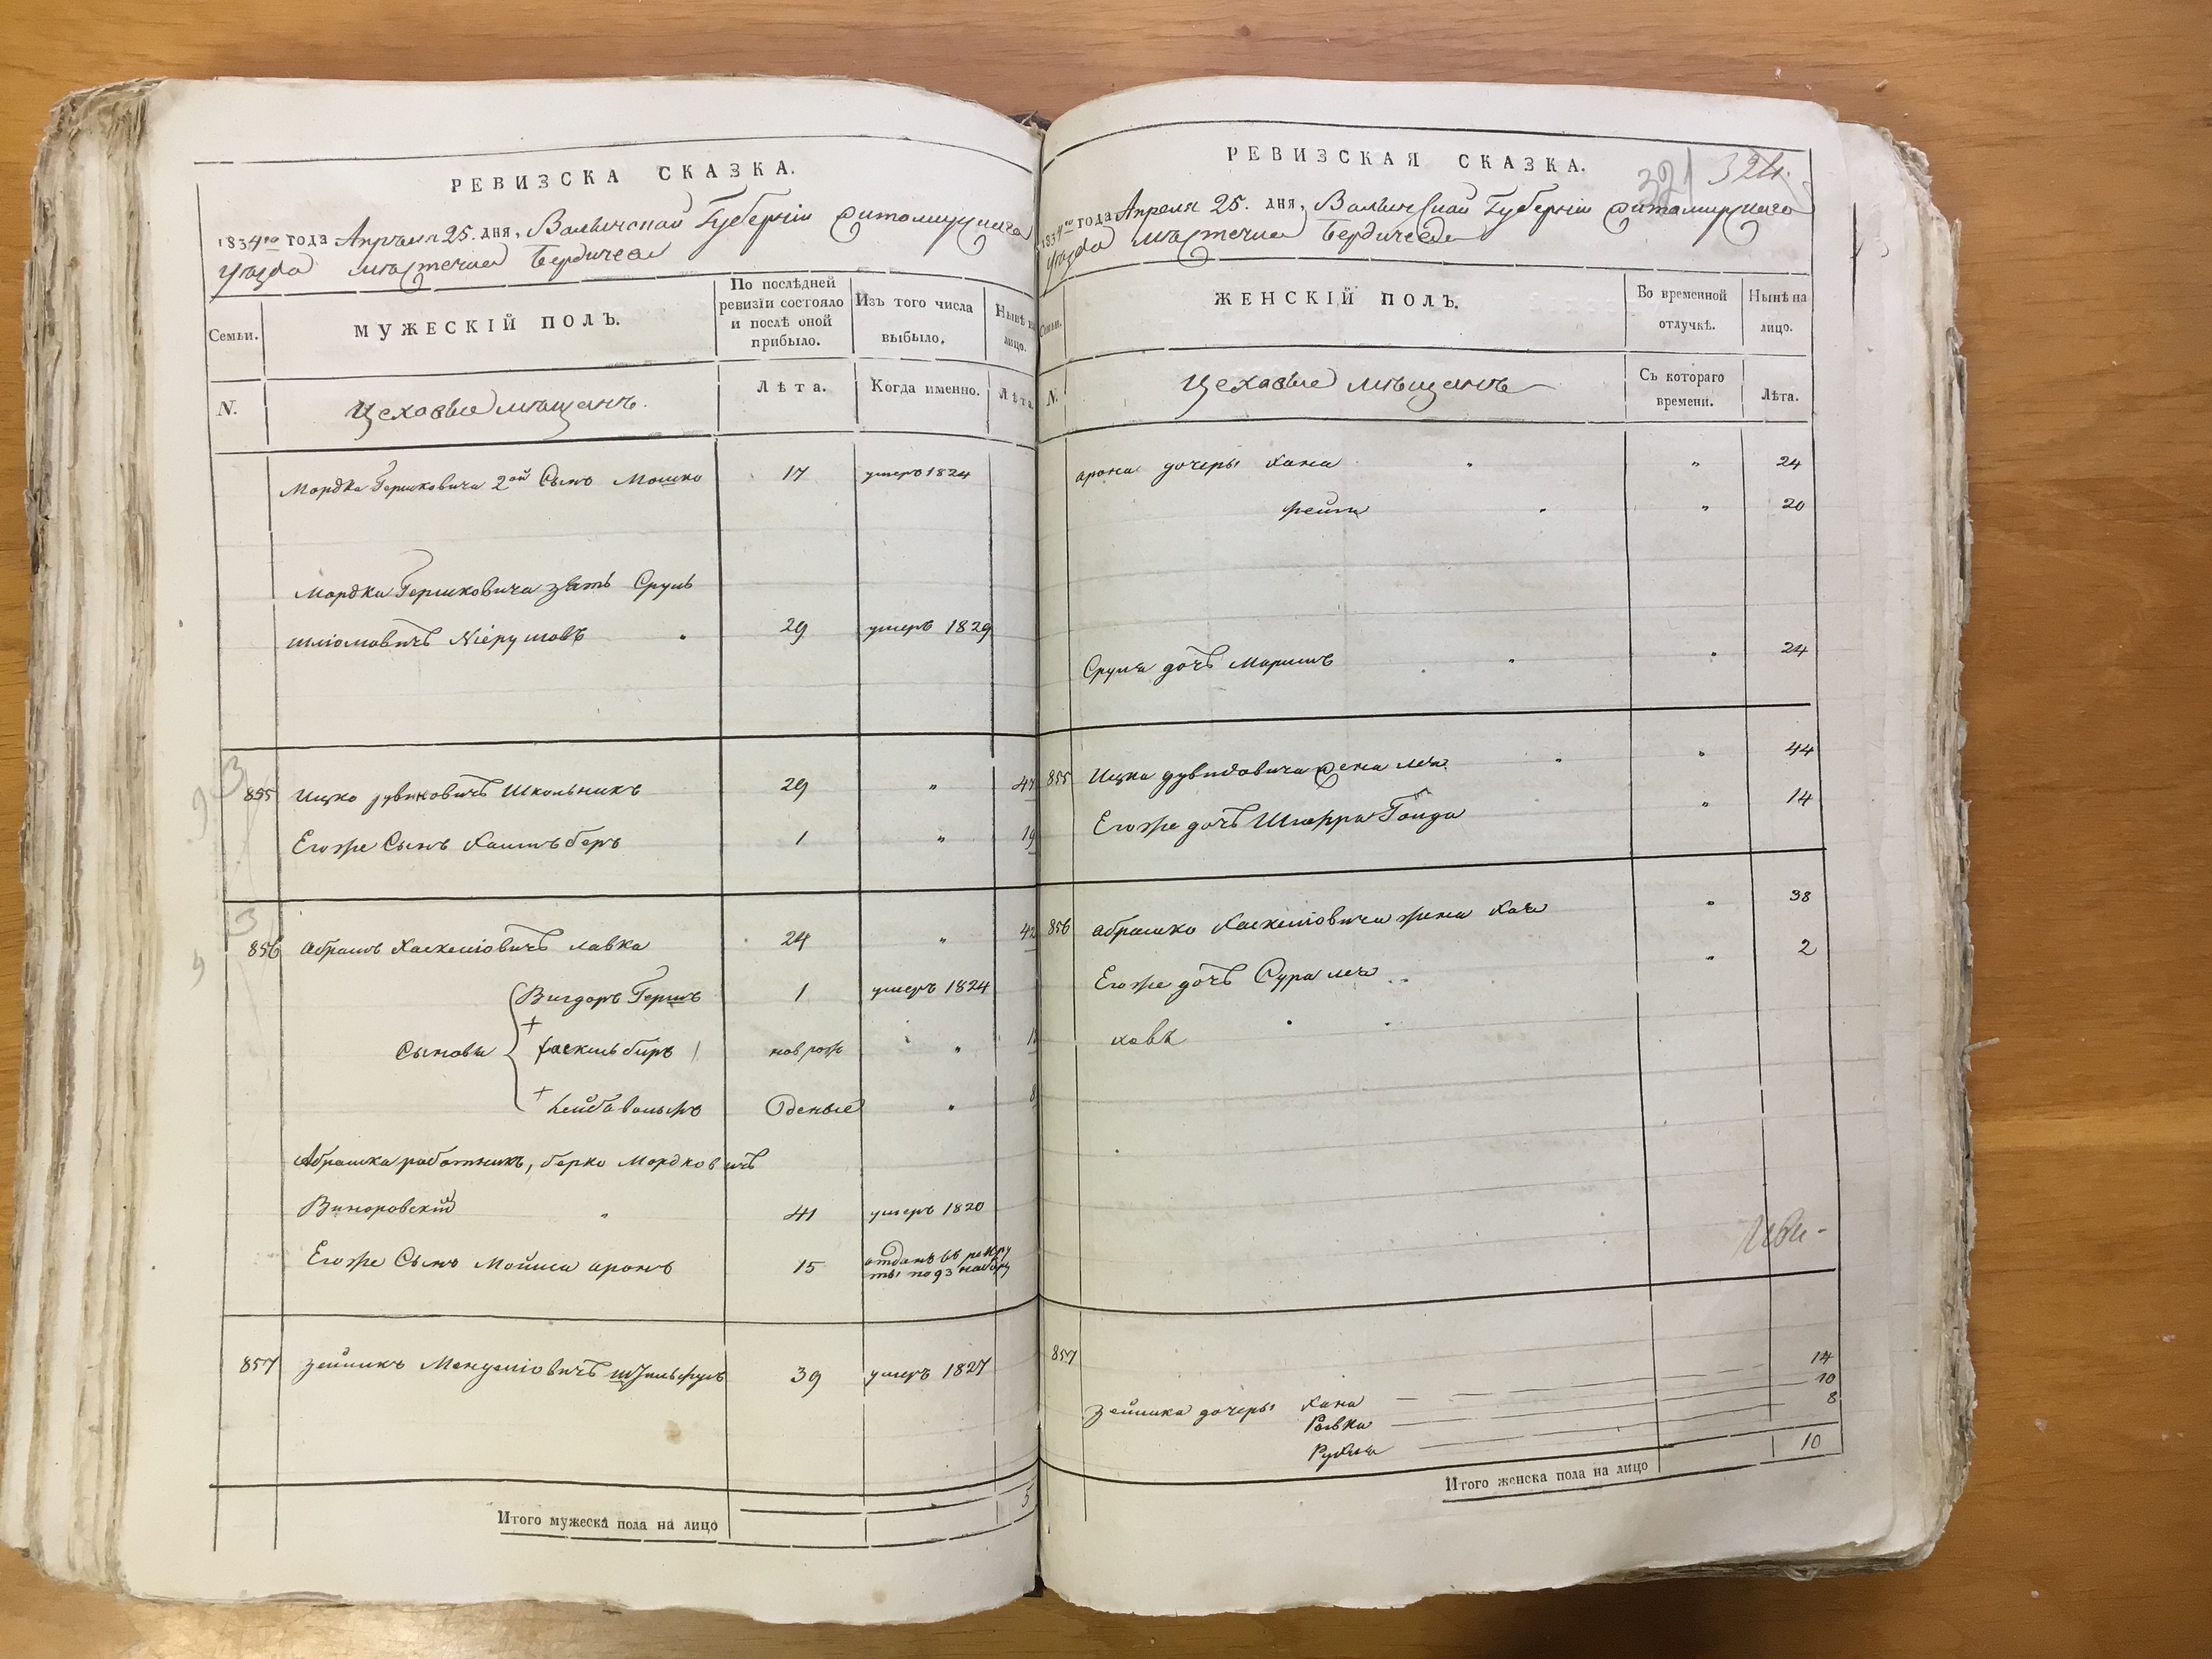 РЕВИЗСКА СКАЗКА.
1834го года Апреля 25. дня, Волынской Губернiи Житомирскаго
Уѣзда мѣстечка Бердичева
Семьи.
МУЖЕСКІЙ ПОЛЪ.
По послѣдней
ревизіи состояло
и послѣ оной
прибыло.
Изъ того числа
выбыло.
Нынѣ на
лицо.
N.
Цеховые мѣщанъ.
Лѣта.
Когда именно.
Лѣта.
Мордка Гершковича 2ой Сынъ Мошко 17 умеръ 1824
Мордки Гершковича зять Сруль
Шліомовичъ 29 умеръ 1829
855 Ицко Школьникъ 29 "
Егоже Сынъ Хаимъ беръ 1 " 19
856 Абрамъ Хаскеліовичъ Лавка 24 " 42
Вигдоръ Гершъ 1 умеръ 1824
Сыновья Хаскель беръ новрож "
+ Лейба Вольфъ денные " 8
Абрашка работникъ, берко Мордковичъ
41 умеръ 1820
Егоже Сынъ Мойша аронъ 15 отданъ въ рекру
ты по 93 набору
857 Зейликъ Менделіовичъ 39 умеръ 1827
Итого мужеска пола на лицо 5
РЕВИЗСКАЯ СКАЗКА.
321 324.
1834го года Апреля 25. дня, Волынской Губернiи Житомирскаго
Уѣзда мѣстечка Бердичева
Семьи.
ЖЕНСКІЙ ПОЛЪ.
Во временной
отлучкѣ.
Нынѣ на
лицо.
N.
Цеховые мѣщанъ
Съ котораго
времени.
Лѣта.
арона дочеры Хана " 24
Фейга " 20
Сруля дочъ Маріимъ " 24
855 Ицка жена Леа " 44
Егоже дочъ " 14
856 Абрашко Хаскеліовича жена Хая " 38
Егоже дочъ Сура Леа " 2
857
Зейлика дочеры Хана 14
Ривка 10
Рухля 8
Итого женска пола на лицо 10